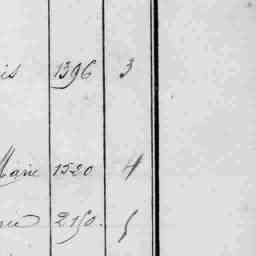 is 1396 3
Marie 1520 4
2150. 5